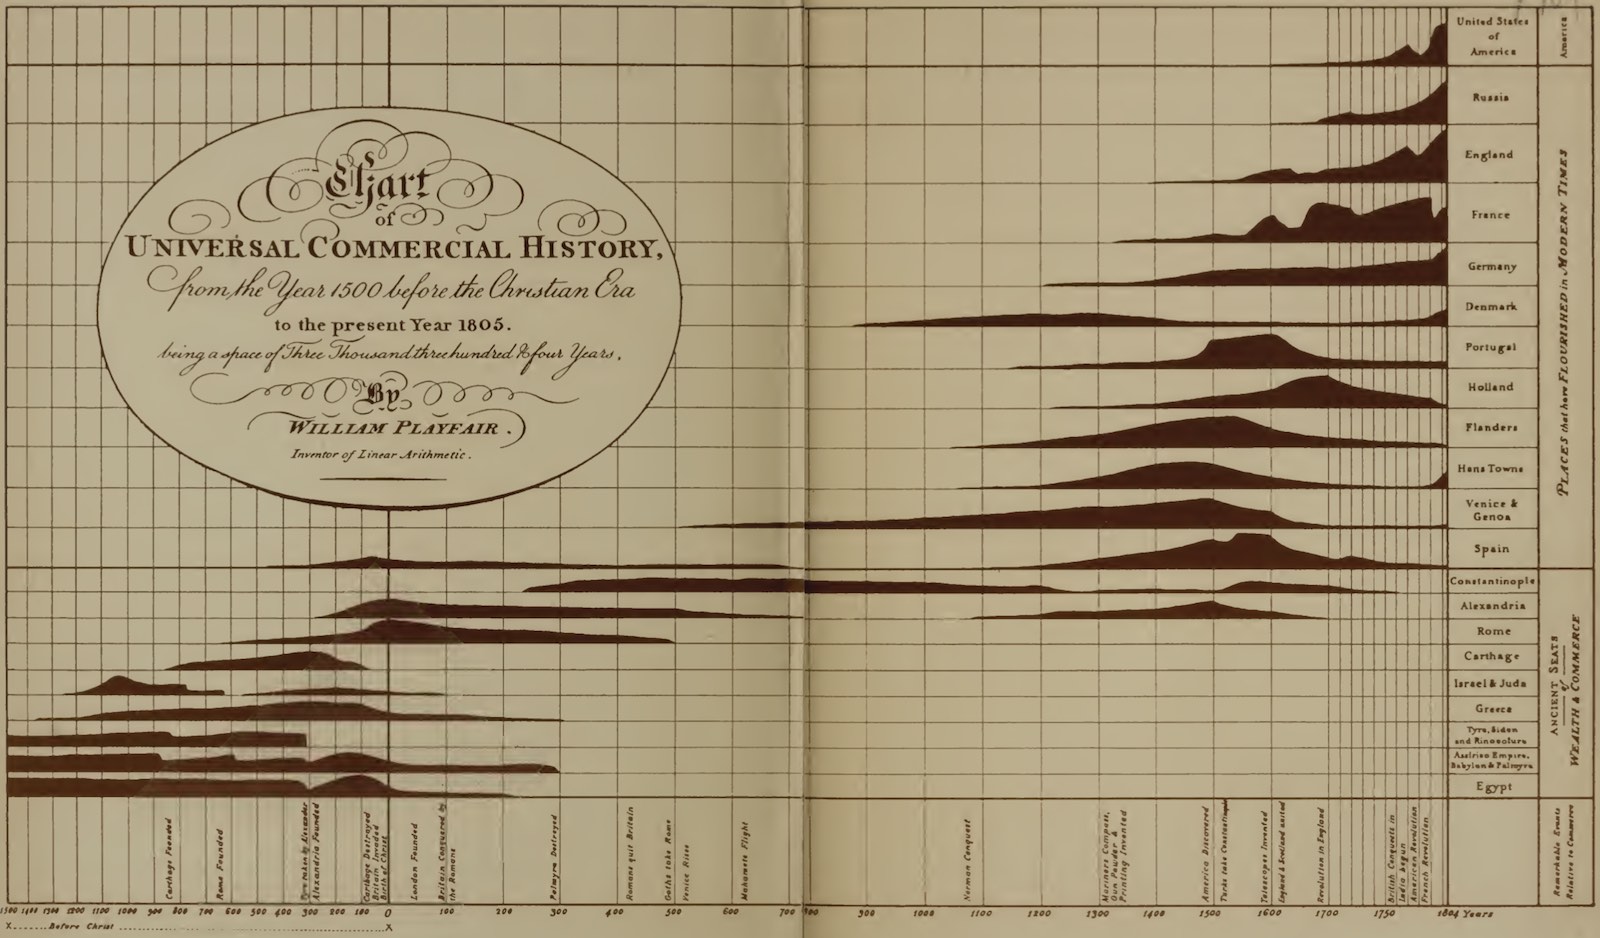 Chart
of
UNIVERSAL COMMERCIAL HISTORY,
from the Year 1500 before the Christian Era
to the present Year 1805.
being a space of Three Thousand three hundred & four Years,
By
WILLIAM PLAYFAIR.
Inventor of Linear Arithmetic.
United States
of
America
Russia
England
France
Germany
Denmark
Portugal
Holland
Flanders
Hans Towns
Venice &
Genoa
Spain
Constantinople
Alexandria
Rome
Carthage
Israel & Juda
Greece
Tyre, Sidon
and Rinocolura
Assirian Empire,
Babylon & Palmyra
Egypt
America
PLACES that have FLOURISHED in MODERN TIMES
ANCIENT SEATS
of
WEALTH & COMMERCE
Remarkable Events
Relative to Commerce
Carthage Founded
Rome Founded
Tyre taken by Alexander
Alexandria Founded
Carthage Destroyed
Britain Invaded
Birth of Christ
London Founded
Britain Conquered by
the Romans
Palmyra Destroyed
Romans quit Britain
Goths take Rome
Venice Rises
Mahomets Flight
Norman Conquest
Mariners Compass,
Gun Powder &
Printing Invented
America Discovered
Turks take Constantinople
Telescopes Invented
England & Scotland united
Revolution in England
British Conquests in
India begun
American Revolution
French Revolution
1500 1400 1300 1200 1100 1000 900 800 700 600 500 400 300 200 100 0 100 200 300 400 500 600 700 800 900 1000 1100 1200 1300 1400 1500 1600 1700 1750 1804 Years
X.......Before Christ.......X